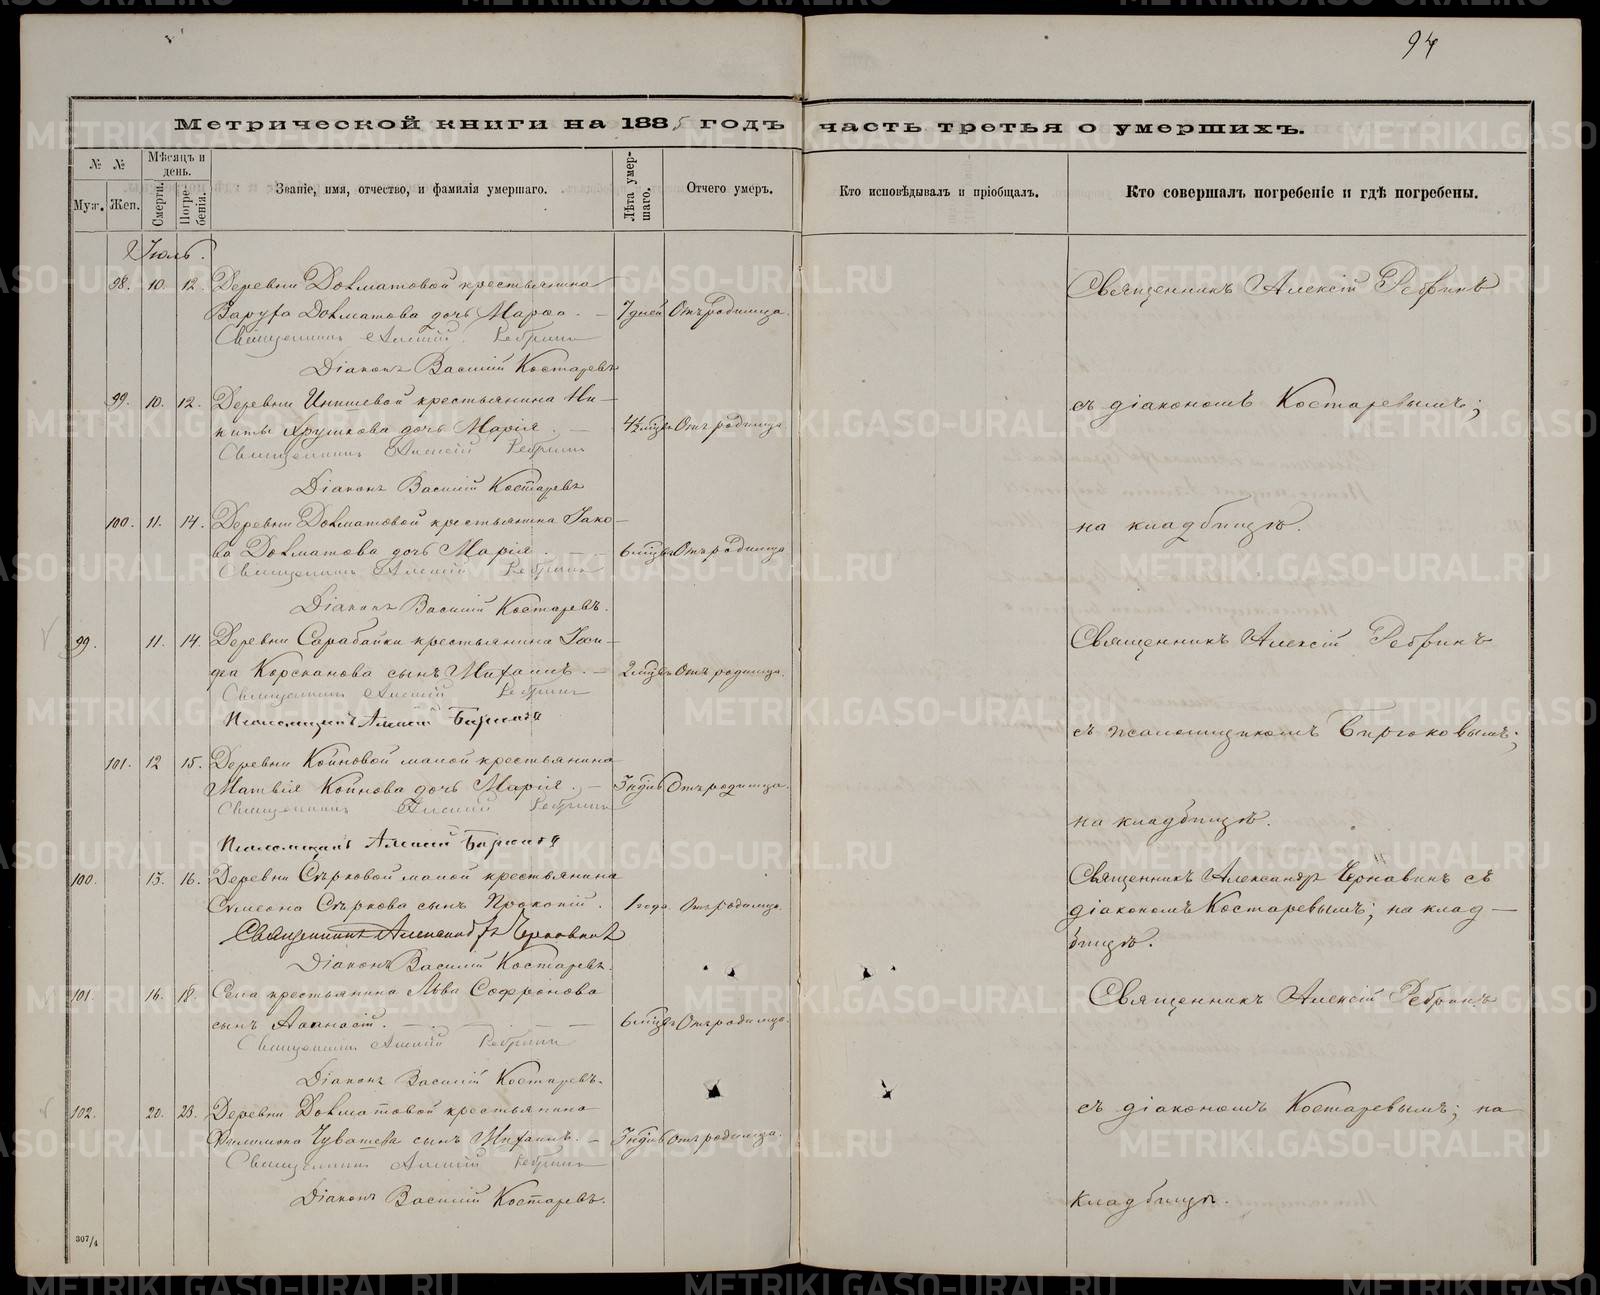 94
Метрической книги на 1885 годъ часть третья о умершихъ.
№ №
Муж. Жен.
Мѣсяцъ и день.
Смерти.
Погребенія.
Званіе, имя, отчество, и фамилія умершаго.
Лѣта умершаго.
Отчего умеръ.
Кто исповѣдывалъ и пріобщалъ.
Кто совершалъ погребеніе и гдѣ погребены.
Іюль.
98. 10. 12. Деревни Долматовой крестьянина
Долматова дочь Марѳа. — 7 дней Отъ родимца.
Священникъ Алексій Ребринъ
Діаконъ Василій Костаревъ
99. 10. 12. Деревни крестьянина Ни-
киты Хрушкова дочь Марія. — Отъ родимца
Священникъ Алексій Ребринъ
Діаконъ Василій Костаревъ
100. 11. 14. Деревни Долматовой крестьянина Іако-
ва Долматова дочь Марія. — Отъ родимца
Священникъ Алексій Ребринъ
Діаконъ Василій Костаревъ.
99. 11. 14. Деревни Сарабайки крестьянина
сынъ Михаилъ. — Отъ родимца.
Священникъ Алексій Ребринъ
Псаломщикъ Алексій Бирюковъ
101. 12 15. Деревни Койновой малой крестьянина
Матвія Койнова дочь Марія. — 3 нѣдѣли Отъ родимца.
Священникъ Алексій Ребринъ
Псаломщикъ Алексій Бирюковъ
100. 15. 16. Деревни Сѣрковой малой крестьянина
Симеона Сѣркова сынъ Прокопій. 1 года. Отъ родимца.
Священникъ Александръ Чернавинъ
Діаконъ Василій Костаревъ.
101. 16. 18. Села крестьянина Льва Софронова
сынъ Аѳанасій. — Отъ родимца.
Священникъ Алексій Ребринъ
Діаконъ Василій Костаревъ.
102. 20. 23. Деревни Долматовой крестьянина
Филимона Чувашева сынъ Михаилъ. — 3 нѣдѣли Отъ родимца.
Священникъ Алексій Ребринъ
Діаконъ Василій Костаревъ.
307/4
Священникъ Алексій Ребринъ
съ діакономъ Костаревымъ;
на кладбищѣ.
Священникъ Алексій Ребринъ
съ псаломщикомъ Бирюковымъ;
на кладбищѣ.
Священникъ Александръ Чернавинъ съ
діакономъ Костаревымъ; на клад-
бищѣ.
Священникъ Алексій Ребринъ
съ діакономъ Костаревымъ; на
кладбищѣ.
METRIKI.GASO-URAL.RU